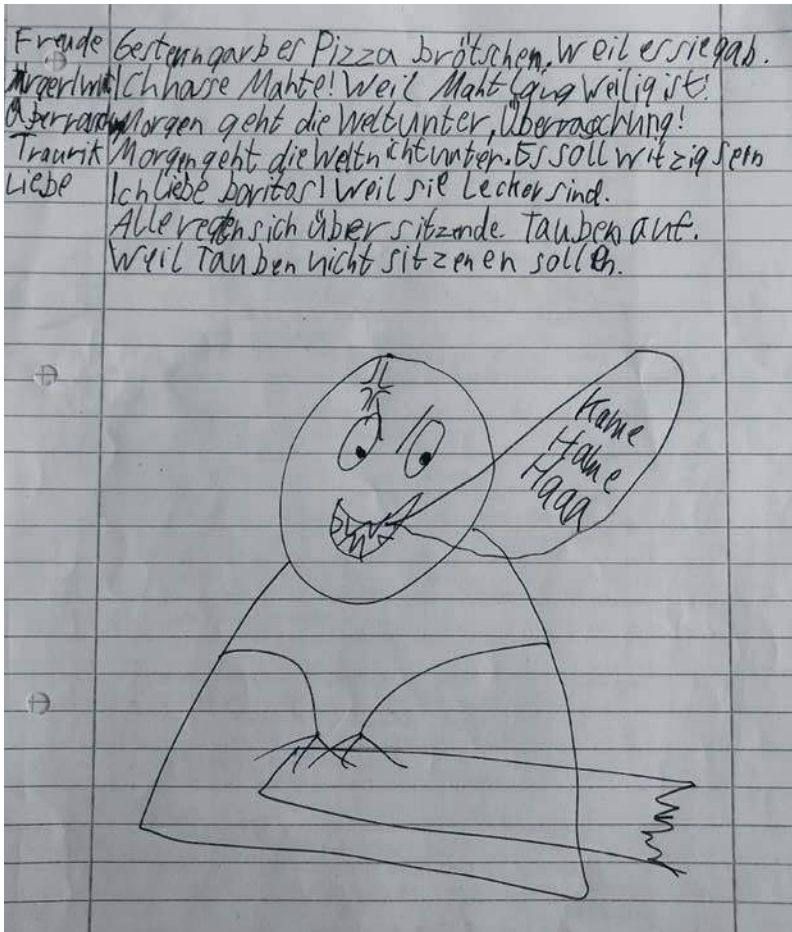 Freude Gestern garb es Pizza brötschen. Weil es sie gab.
Ärger/wut Ich hasse Mahte! Weil Maht lang weilig ist!
Morgen geht die Welt unter, Überraschung!
Traurik Morgen geht die Welt nicht unter. Es soll witzig sein
Liebe Ich liebe boritos! Weil sie Lecker sind.
Alle regen sich über sitzende Tauben auf.
Weil Tauben nicht sitzenen sollen.
Kame
Hame
Haaa